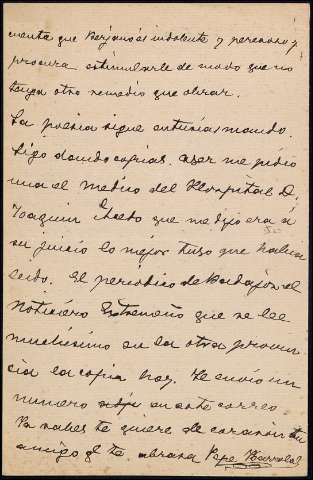 cuenta que Benjamín es indolente y perezoso y
procura estimularle de modo que no
tenga otro remedio que obrar.
La poesia sigue entusiasmando.
Sigo dando copias. Ayer me pidio
una el medico del Hospital D.
Joaquin que me dijo era a
su juicio lo mejor tuyo que habia
leido. El periódico de Badajoz el
Noticiero Extremeño que se lee
muchisimo en la otra provin
cia la copia hoy. Te envio un
numero en este correo.
Ya sabes te quiere de corazón tu
amigo q. te abraza Pepe